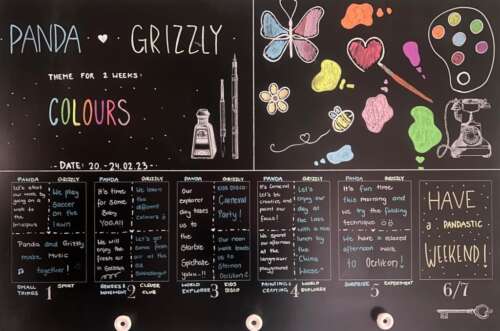 PANDA GRIZZLY
THEME FOR 2 WEEKS:
COLOURS
- DATE: 20.-24.02.23 -
PANDA GRIZZLY
Let's start
our week by
going on a
walk to
the
We play
Soccer
on the
lawn
Panda and Grizzly
make Music
together!
SMALL THINGS 1 SPORT
PANDA GRIZZLY
It's time
for some
Baby
YOGA!!
We learn
the
different
Colours
We will
enjoy the
fresh air
in
Let's get
some
air at the
MOVEMENT 2 CLEVER CLUB
PANDA GRIZZLY
Our
explorer
day takes
us to
the
KIDS DISCO:
Carneval
Party!
yahoo..!!
Our noon
walk brings
us to
Oerlikon
WORLD EXPLORER 3 KIDS DISCO
PANDA GRIZZLY
It's Carneval
Let's be
creative and
paint our
faces!
Let's
enjoy our
day at
the lake
with a nice
lunch by
the
China
Wiese
We spend
our afternoon
at the
playground
PAINTING/CRAFTING 4 WORLD EXPLORER
PANDA GRIZZLY
It's fun time
this morning and
we try the folding
technique
We have a relaxed
afternoon walk
to Oerlikon!
SURPRISE 5 EXPERIMENT
HAVE
a PANDASTIC
WEEKEND!
6/7